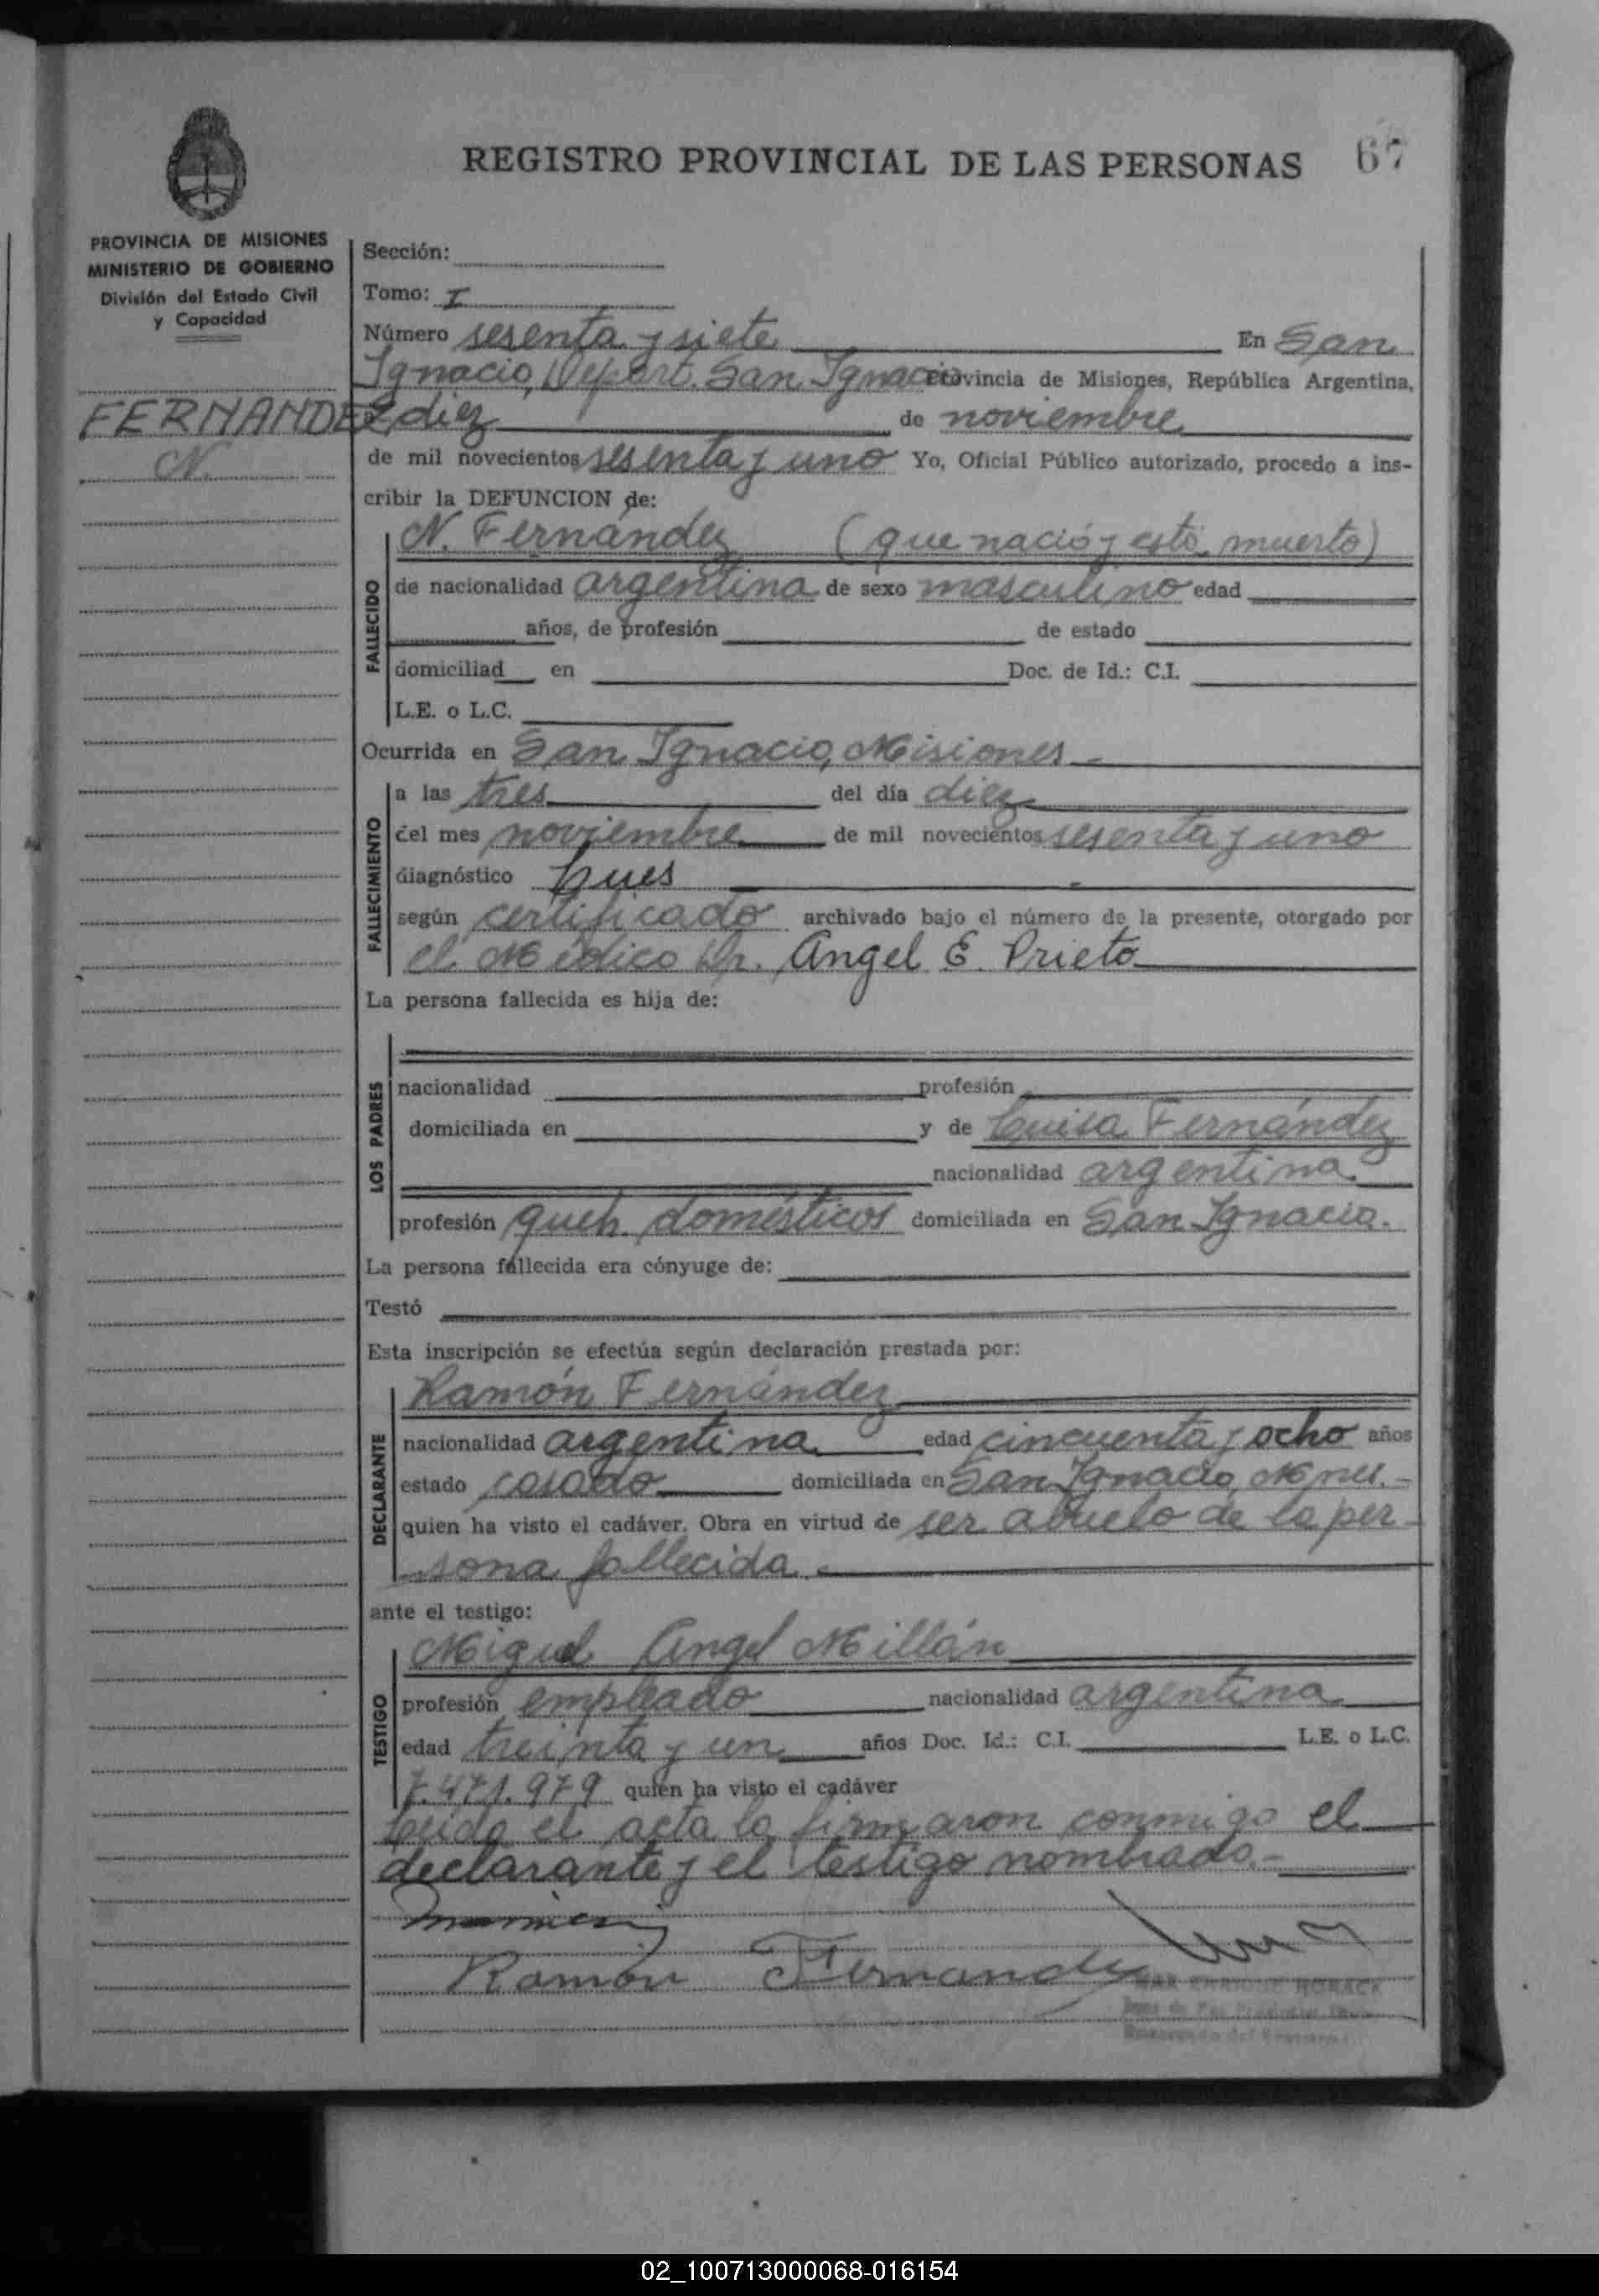 REGISTRO PROVINCIAL DE LAS PERSONAS 67
PROVINCIA DE MISIONES
MINISTERIO DE GOBIERNO
División del Estado Civil
y Capacidad
FERNANDEZ
N.
Sección:
Tomo: I
Número sesenta y siete En San
Ignacio, Depart. San Ignacio Provincia de Misiones, República Argentina,
diez de noviembre
de mil novecientos sesenta y uno Yo, Oficial Público autorizado, procedo a ins-
cribir la DEFUNCION de:
FALLECIDO
N. Fernández (que nació y está muerto)
de nacionalidad argentina de sexo masculino edad
años, de profesión de estado
domiciliad en Doc. de Id.: C.I.
L.E. o L.C.
Ocurrida en San Ignacio, Misiones
FALLECIMIENTO
a las tres del día diez
del mes noviembre de mil novecientos sesenta y uno
diagnóstico Lues
según certificado archivado bajo el número de la presente, otorgado por
el Médico Dr. Angel E. Prieto
La persona fallecida es hija de:
LOS PADRES
nacionalidad profesión
domiciliada en y de Luisa Fernández
nacionalidad argentina
profesión queh. domésticos domiciliada en San Ignacio.
La persona fallecida era cónyuge de:
Testó
Esta inscripción se efectúa según declaración prestada por:
DECLARANTE
Ramón Fernández
nacionalidad argentina edad cincuenta y ocho años
estado casado domiciliada en San Ignacio, Mnes.-
quien ha visto el cadáver. Obra en virtud de ser abuelo de la per-
sona fallecida.
ante el testigo:
TESTIGO
Miguel Angel Millán
profesión empleado nacionalidad argentina
edad treinta y un años Doc. Id.: C.I. L.E. o L.C.
7.471.979 quien ha visto el cadáver
Leída el acta la firmaron conmigo el
declarante y el testigo nombrado.-
Ramón Fernandez
02_100713000068-016154